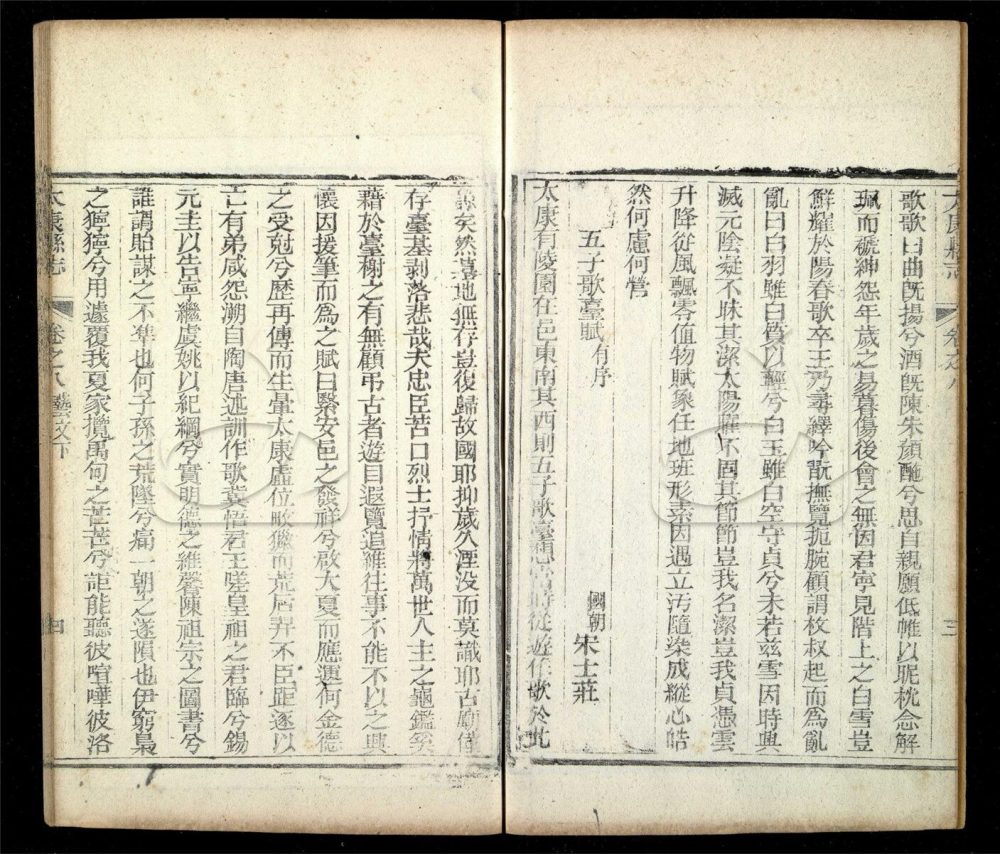 歌歌曰曲既揚兮酒既陳朱顏酡兮思自親願低帷以昵枕念解
珮而褫紳怨年歲之易暮傷後會之無因君寧見階上之白雪豈
鮮耀於陽春歌卒王乃尋繹吟翫撫覽扼腕顧謂枚叔起而爲亂
亂曰白羽雖白質以輕兮白玉雖白空守貞兮未若兹雪因時興
滅元陰凝不昧其潔太陽耀不固其節節豈我名潔豈我貞憑雲
升降從風飄零值物賦象任地班形素因遇立汚隨染成縱心皓
然何慮何營
五子歌臺賦 有序
國朝 宋士莊
太康有陵園在邑東南其西則五子歌臺想當時從遊作歌於此
矣然墓地無存豈復歸故國耶抑歲久湮没而莫識耶古廟僅
存臺基剥落悲哉夫忠臣苦口烈士抒情將萬世人主之龜鑑奚
藉於臺榭之有無顧弔古者遊目遐覽追維往事不能不以之興
懷因援筆而爲之賦曰緊安邑之發祥兮啟大夏而應運何金德
之受尅兮歷再傳而生暈太康虛位畋獵而荒居羿不臣距遂以
亡有弟咸怨溯自陶唐述訓作歌冀悟君王嗟皇祖之君臨兮錫
元圭以告寧繼虞姚以紀綱兮實明德之維馨陳祖宗之圖書兮
誰謂貽謀之不準也何子孫之荒墜兮痛一朝之遂隕也伊窮梟
之獰獰兮用遽覆我夏家攬禹甸之茫茫兮詎能聽彼喧嘩彼洛
太康縣志
卷之八 藝文下
四
太康縣志
卷之八
三